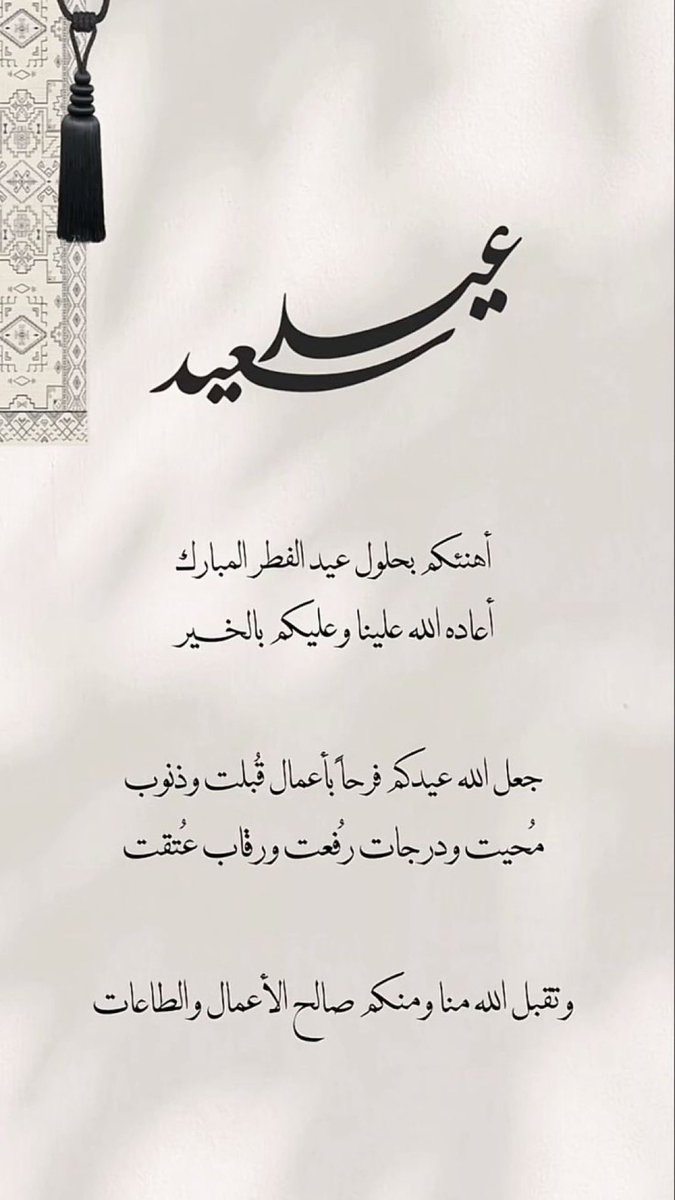 عيد سعيد
أهنئكم بحلول عيد الفطر المبارك
أعاده الله علينا وعليكم بالخير
جعل الله عيدكم فرحاً بأعمال قُبلت وذنوب
مُحيت ودرجات رُفعت ورقاب عُتقت
وتقبل الله منا ومنكم صالح الأعمال والطاعات